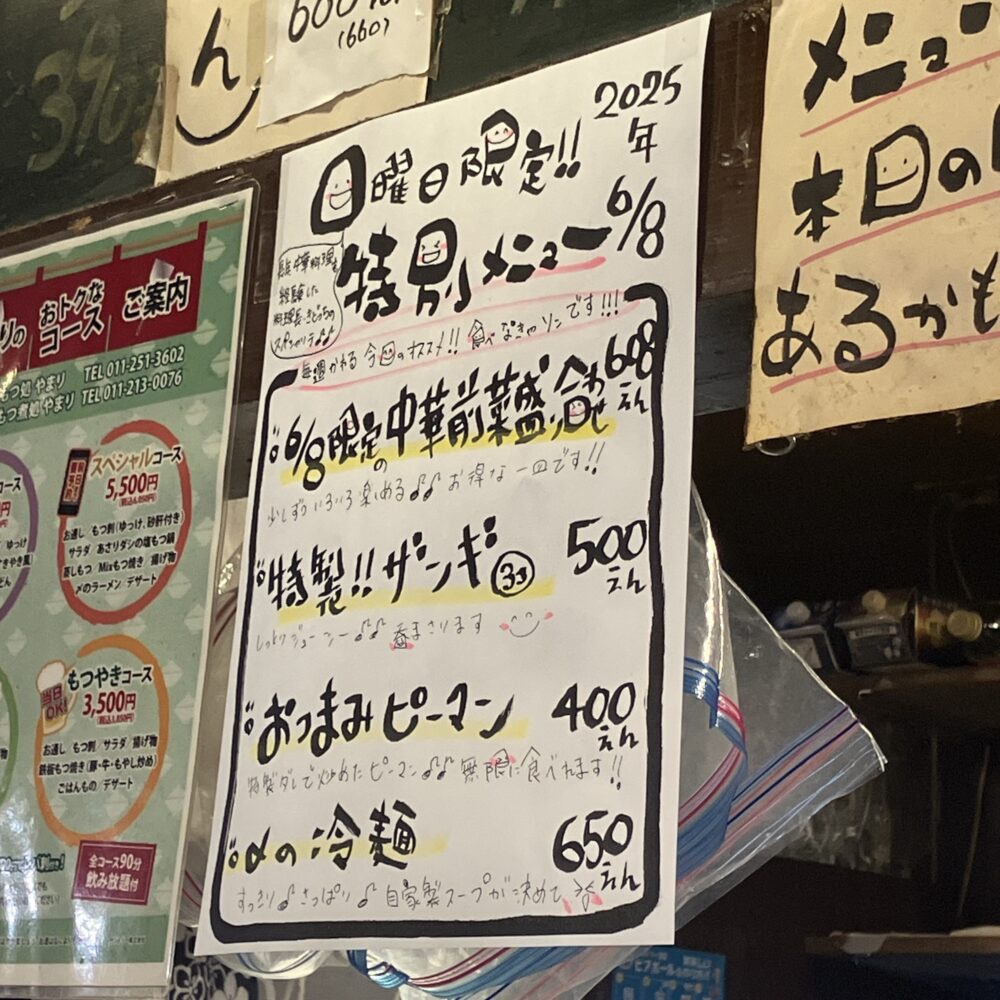 ん
(660)
2025年
6/8
日曜日限定!!
特別メニュー
毎週かわる 今日のオススメ!! 食べなきゃソンです!!!
6/8限定の中華前菜盛り合わせ
608えん
少しずついろいろ楽める♪♪ お得な一皿です!!
特製!!ザンギ③コ
500えん
しっとりジューシー♪♪ 呑まさります
おつまみピーマン
400えん
特製ダレで炒めたピーマン♪♪ 無限に食べれます!!
〆の冷麺
650えん
すっきり♪さっぱり♪ 自家製スープが決めて
メニュー
本日の
あるかも
おトクな
コース
ご案内
もつ処 やまり TEL 011-251-3602
もつ煮処 やまり TEL 011-213-0076
スペシャルコース
5,500円
お通し/もつ刺(ゆっけ、砂肝付き)
サラダ/あさりダシの塩もつ鍋
蒸しもつ/Mixもつ焼き/揚げ物
〆のラーメン/デザート
当日OK!
もつやきコース
3,500円
お通し/もつ刺/サラダ/揚げ物
鉄板もつ焼き(豚・牛・もやし炒め)
ごはんもの/デザート
全コース90分
飲み放題付